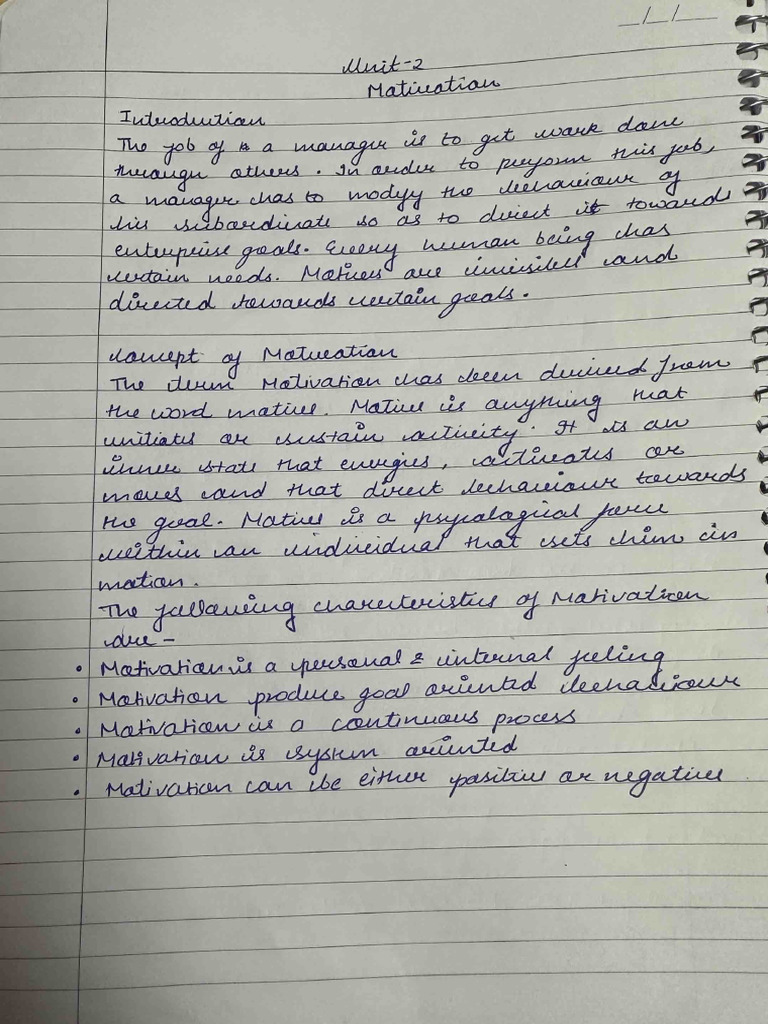 Unit-2
Motivation
Introduction
The job of a manager is to get work done
through others. In order to perform this job,
a manager has to modify the behaviour of
his subordinate so as to direct it towards
enterprise goals. Every human being has
certain needs. Motives are invisible and
directed towards certain goals.
Concept of Motivation
The term Motivation has been derived from
the word motive. Motive is anything that
initiates or sustain activity. It is an
inner state that energies, activates or
moves and that direct behaviour towards
the goal. Motive is a psycological force
within an individual that sets him in
motion.
The following charecteristics of Motivation
are -
• Motivation is a personal & internal feeling
• Motivation produce goal oriented behaviour
• Motivation is a continuous process
• Motivation is system oriented
• Motivation can be either positive or negative